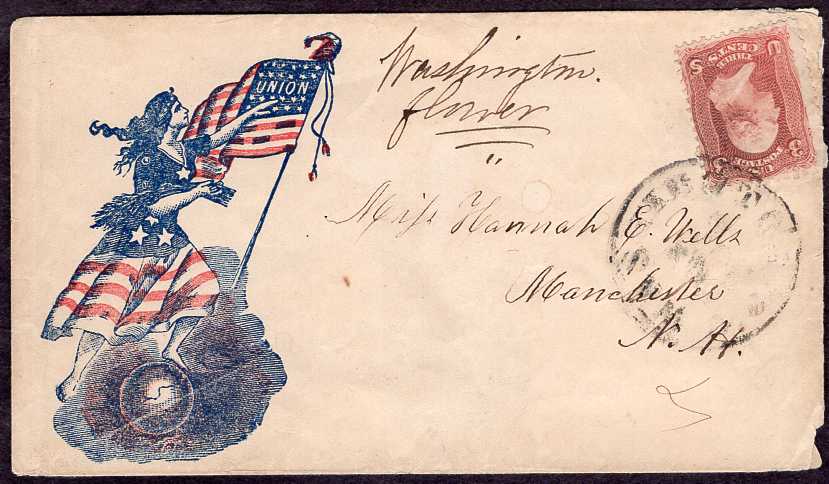 UNION
Washington.
flower
Miss Hannah E. Wells
Manchester
N. H.
U S
THREE
CENTS
POSTAGE
3